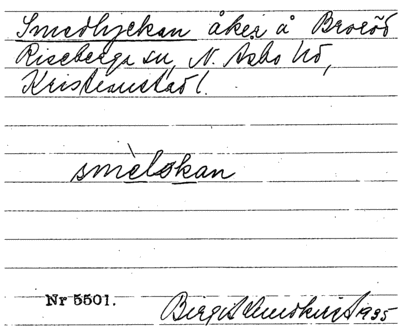 Smedlyckan åker å Broröd
Riseberga sn, N. Åsbo hd,
Kristianstad l.
smèlokan
Nr 5501.
Birgit Lundkvist 1935